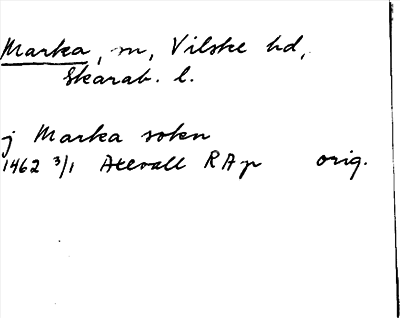 Marka, m, Vilske hd,
Skarab. l.
j Marka sokn
1462 3/1 Atlvall RAp orig.